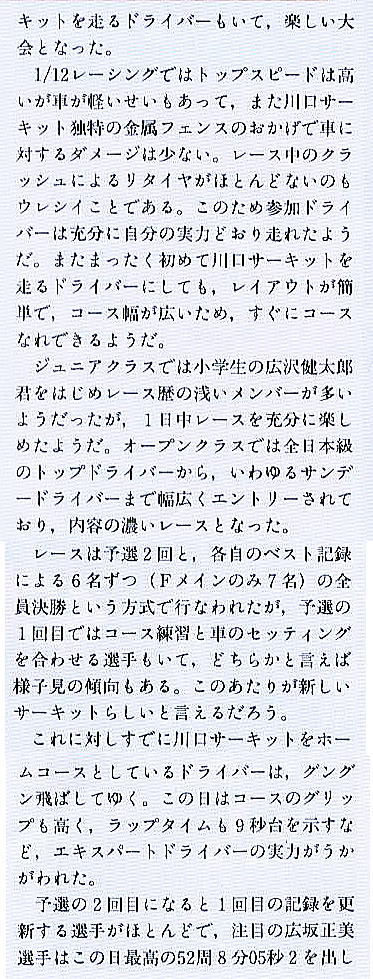 キットを走るドライバーもいて，楽しい大
会となった。
　1/12レーシングではトップスピードは高
いが車が軽いせいもあって，また川口サー
キット独特の金属フェンスのおかげで車に
対するダメージは少ない。レース中のクラ
ッシュによるリタイヤがほとんどないのも
ウレシイことである。このため参加ドライ
バーは充分に自分の実力どおり走れたよう
だ。またまったく初めて川口サーキットを
走るドライバーにしても，レイアウトが簡
単で，コース幅が広いため，すぐにコース
なれできるようだ。
　ジュニアクラスでは小学生の広沢健太郎
君をはじめレース歴の浅いメンバーが多い
ようだったが，１日中レースを充分に楽し
めたようだ。オープンクラスでは全日本級
のトップドライバーから，いわゆるサンデ
ードライバーまで幅広くエントリーされて
おり，内容の濃いレースとなった。
　レースは予選２回と，各自のベスト記録
による６名ずつ（Ｆメインのみ７名）の全
員決勝という方式で行なわれたが，予選の
１回目ではコース練習と車のセッティング
を合わせる選手もいて，どちらかと言えば
様子見の傾向もある。このあたりが新しい
サーキットらしいと言えるだろう。
　これに対しすでに川口サーキットをホー
ムコースとしているドライバーは，グング
ン飛ばしてゆく。この日はコースのグリッ
プも高く，ラップタイムも９秒台を示すな
ど，エキスパートドライバーの実力がうか
がわれた。
　予選の２回目になると１回目の記録を更
新する選手がほとんどで，注目の広坂正美
選手はこの日最高の52周８分05秒２を出し